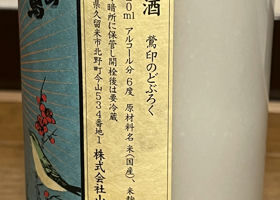 酒
鶯印のどぶろく
0ml アルコール分 6度 原材料名 米(国産)、米麹
暗所に保管し開栓後は要冷蔵
県久留米市北野町今山534番地1
株式会社山